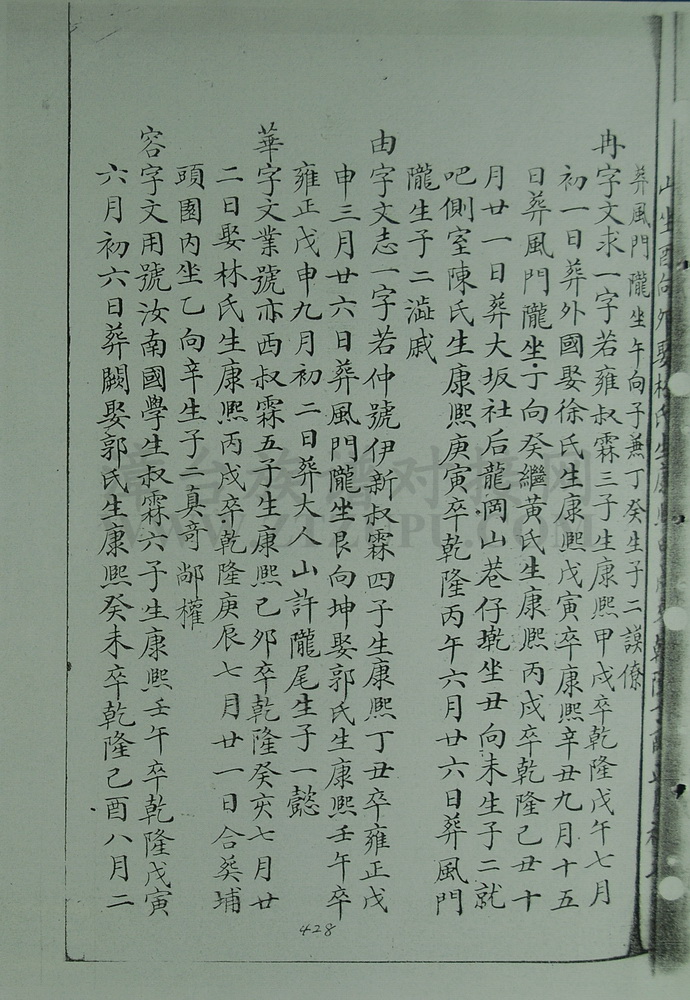 山坐酉向外娶林氏生康熙
葬風門隴坐午向子兼丁癸生子二謨僚
冉字文求一字若雍叔霖三子生康熙甲戌卒乾隆戊午七月
初一日葬外國娶徐氏生康熙戊寅卒康熙辛丑九月十五
日葬風門隴坐丁向癸繼黃氏生康熙丙戌卒乾隆己丑十
月廿一日葬大坂社后龍岡山巷仔墘坐丑向未生子二就
吧側室陳氏生康熙庚寅卒乾隆丙午六月廿六日葬風門
隴生子二澁戚
由字文志一字若仲號伊新叔霖四子生康熙丁丑卒雍正戊
申三月廿六日葬風門隴坐艮向坤娶郭氏生康熙壬午卒
雍正戊申九月初二日葬大人山許隴尾生子一懿
華字文業號亦西叔霖五子生康熙己夘卒乾隆癸亥七月廿
二日娶林氏生康熙丙戌卒乾隆庚辰七月廿一日合葵埔
頭園内坐乙向辛生子二真奇鄙權
容字文用號汝南國學生叔霖六子生康熙壬午卒乾隆戊寅
六月初六日葬闕娶郭氏生康熙癸未卒乾隆己酉八月二
428
WWW.ZTZUPU.COM